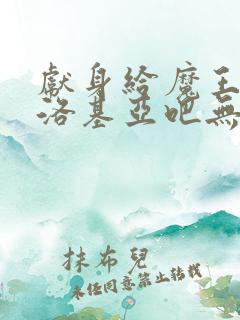 獻身給魔王
洛基亞吧無
抹布兒
未经同意禁止转载